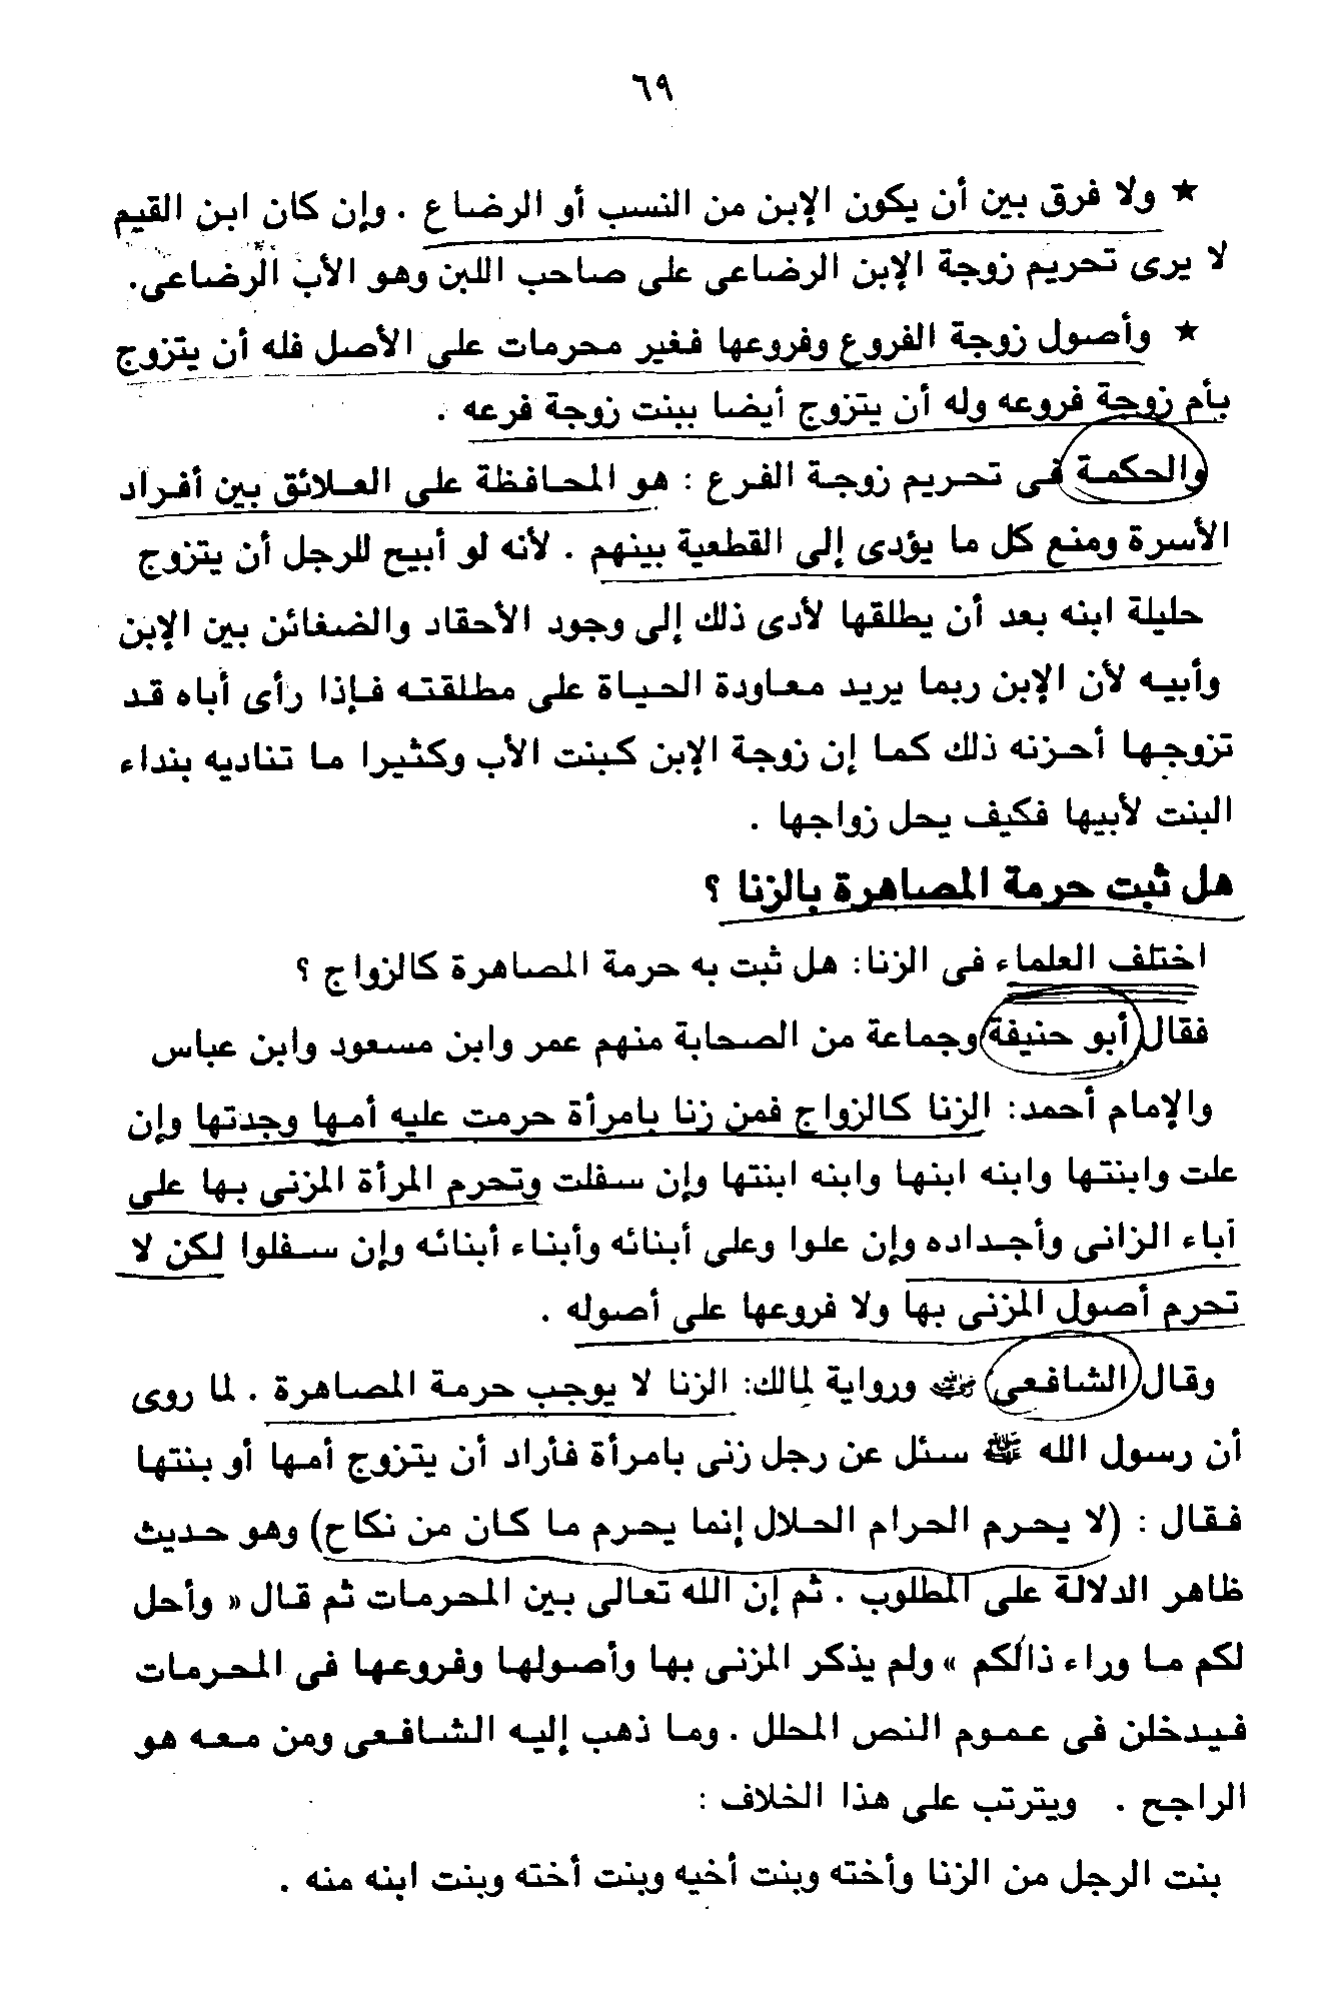 ٦٩
★ ولا فرق بين أن يكون الإبن من النسب أو الرضاع . وإن كان ابن القيم
لا يرى تحريم زوجة الإبن الرضاعى على صاحب اللبن وهو الأب الرضاعى.
★ وأصول زوجة الفروع وفروعها فغير محرمات على الأصل فله أن يتزوج
بأم زوجة فروعه وله أن يتزوج أيضا ببنت زوجة فرعه .
والحكمة فى تحريم زوجة الفرع : هو المحافظة على العلائق بين أفراد
الأسرة ومنع كل ما يؤدى إلى القطعية بينهم . لأنه لو أبيح للرجل أن يتزوج
حليلة ابنه بعد أن يطلقها لأدى ذلك إلى وجود الأحقاد والضغائن بين الإبن
وأبيه لأن الإبن ربما يريد معاودة الحياة على مطلقته فإذا رأى أباه قد
تزوجها أحزنه ذلك كما إن زوجة الإبن كبنت الأب وكثيرا ما تناديه بنداء
البنت لأبيها فكيف يحل زواجها .
هل ثبت حرمة المصاهرة بالزنا ؟
اختلف العلماء فى الزنا: هل ثبت به حرمة المصاهرة كالزواج ؟
فقال أبو حنيفة وجماعة من الصحابة منهم عمر وابن مسعود وابن عباس
والإمام أحمد: الزنا كالزواج فمن زنا بامرأة حرمت عليه أمها وجدتها وإن
علت وابنتها وابنه ابنها وابنه ابنتها وإن سفلت وتحرم المرأة المزنى بها على
آباء الزانى وأجداده وإن علوا وعلى أبنائه وأبناء أبنائه وإن سفلوا لكن لا
تحرم أصول المزنى بها ولا فروعها على أصوله .
وقال الشافعى رضي الله عنه ورواية لمالك: الزنا لا يوجب حرمة المصاهرة . لما روى
أن رسول الله ﷺ سئل عن رجل زنى بامرأة فأراد أن يتزوج أمها أو بنتها
فقال : (لا يحرم الحرام الحلال إنما يحرم ما كان من نكاح) وهو حديث
ظاهر الدلالة على المطلوب . ثم إن الله تعالى بين المحرمات ثم قال « وأحل
لكم ما وراء ذالكم » ولم يذكر المزنى بها وأصولها وفروعها فى المحرمات
فيدخلن فى عموم النص المحلل . وما ذهب إليه الشافعى ومن معه هو
الراجح . ويترتب على هذا الخلاف :
بنت الرجل من الزنا وأخته وبنت أخيه وبنت أخته وبنت ابنه منه .